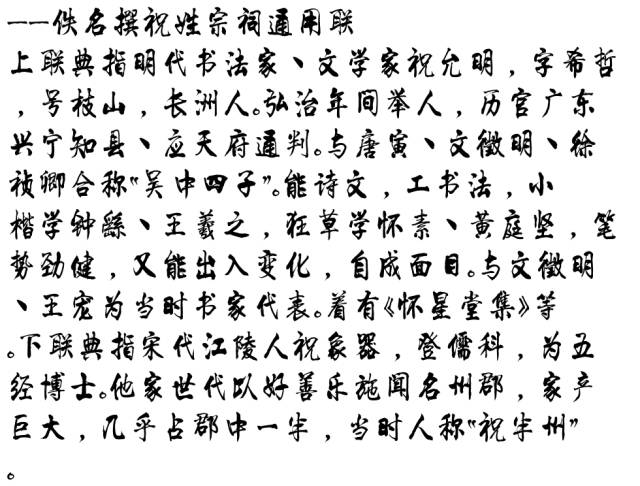 ——佚名撰祝姓宗祠通用联
上联典指明代书法家、文学家祝允明，字希哲
，号枝山，长洲人。弘治年间举人，历官广东
兴宁知县、应天府通判。与唐寅、文徵明、徐
祯卿合称“吴中四子”。能诗文，工书法，小
楷学钟繇、王羲之，狂草学怀素、黄庭坚，笔
势劲健，又能出入变化，自成面目。与文徵明
、王宠为当时书家代表。着有《怀星堂集》等
。下联典指宋代江陵人祝象器，登儒科，为五
经博士。他家世代以好善乐施闻名州郡，家产
巨大，几乎占郡中一半，当时人称“祝半州”
。